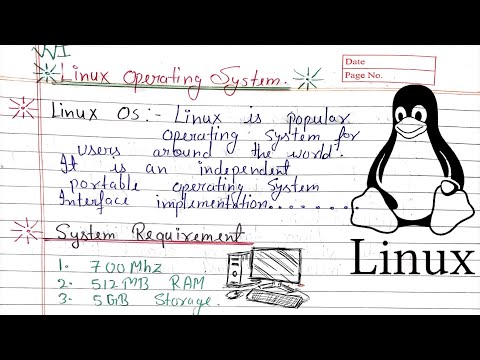 Date
Page No.
Linux Operating System.
Linux Os:- Linux is popular
operating system for
users around the world.
It is an independent
portable operating System
Interface implementation......
System Requirement
1. 700Mhz
2. 512MB RAM
3. 5GB Storage.
Linux